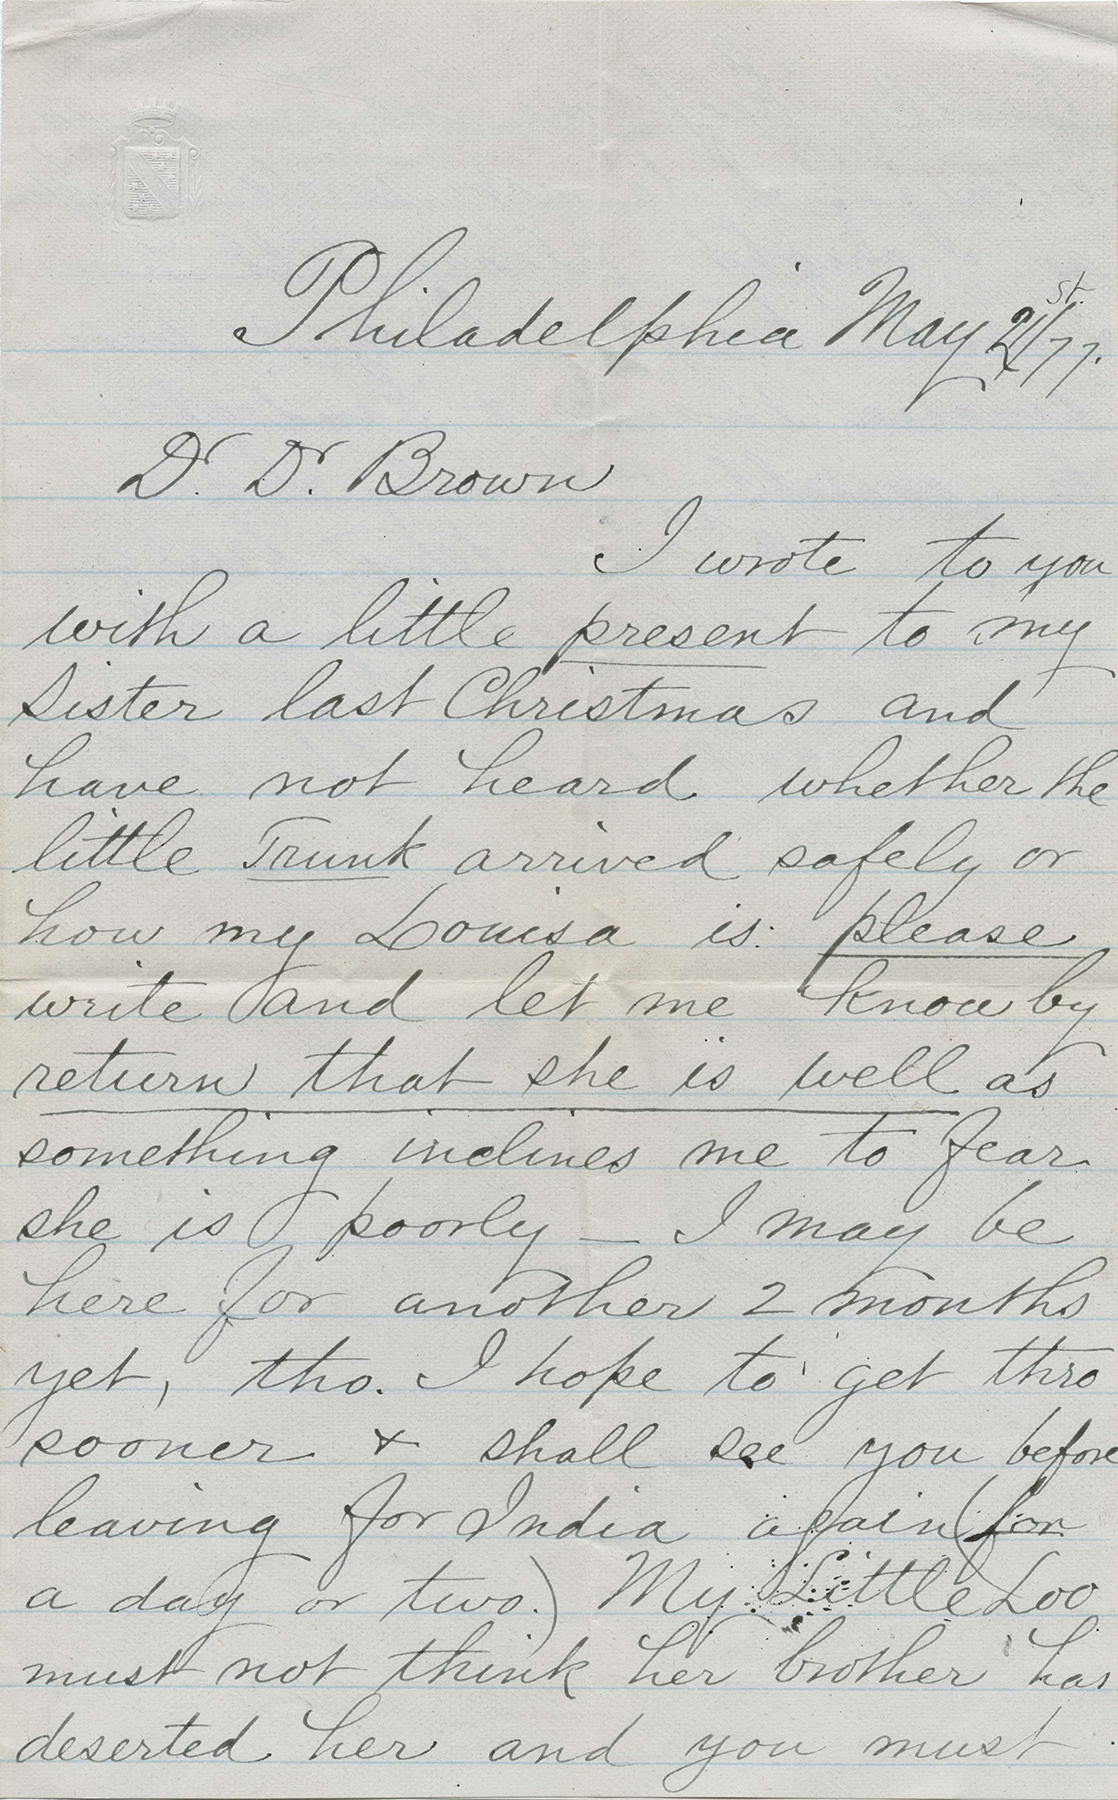 Philadelphia May 21st/77.
Dr. Dr. Brown
I wrote to you
with a little present to my
sister last Christmas and
have not heard whether the
little Trunk arrived safely or
how my Louisa is: please
write and let me know by
return that she is well as
something inclines me to fear
she is poorly — I may be
here for another 2 months
yet, tho. I hope to get thro
sooner & shall see you before
leaving for India again (for
a day or two.) My Little Loo
must not think her brother has
deserted her and you must